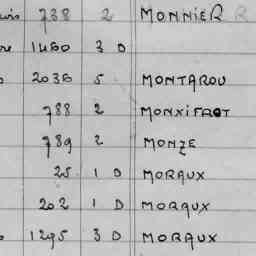 738 2 MONNIER R
1460 3 D
2036 5 MONTAROU
788 2 MONXIFROT
789 2 MONZE
25 1 D MORAUX
202 1 D MORAUX
1295 3 D MORAUX